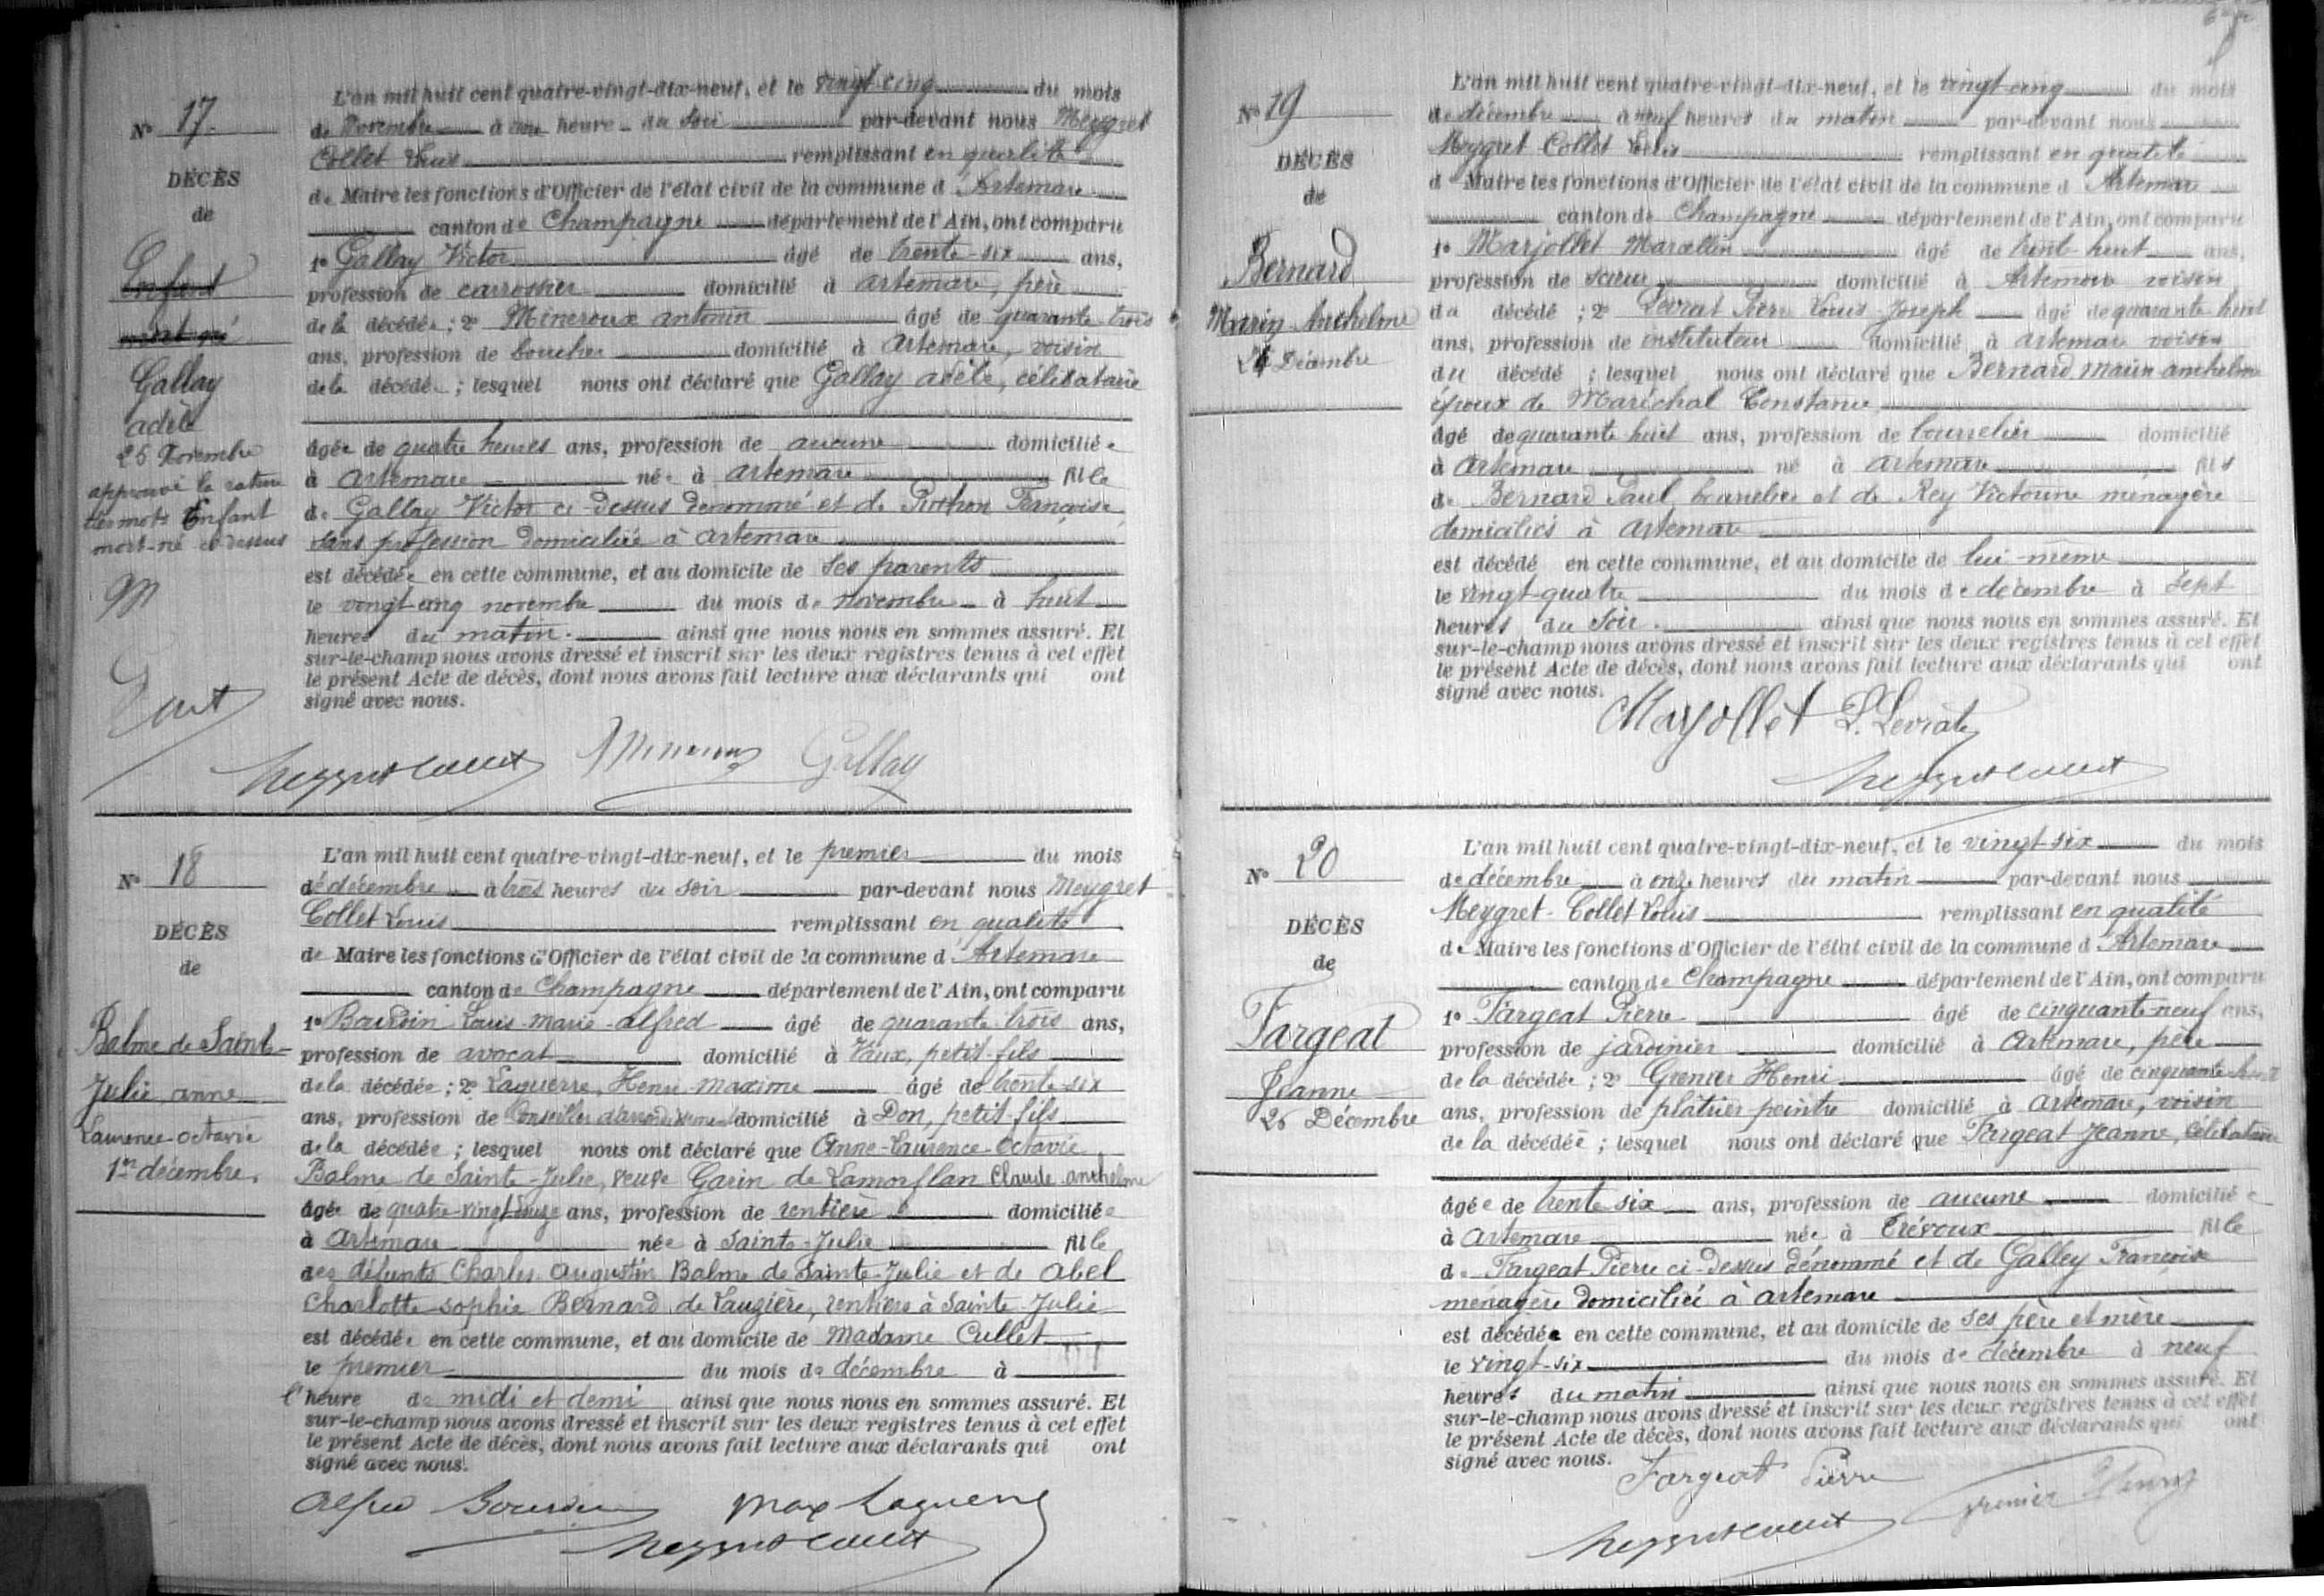 N° 17.
DÉCÈS
de
Enfant
mort-né
Gallay
adèle
25 Novembre
approuvé la rature
des mots Enfant
mort-né ci-dessus
M
L'an mil huit cent quatre-vingt-dix-neuf, et le vingt-cinq du mois
de Novembre à une heure du soir par-devant nous Meygret
Collet Louis remplissant en qualité
de Maire les fonctions d'Officier de l'état civil de la commune d'Artemare
canton de Champagne département de l'Ain, ont comparu
1° Gallay Victor âgé de trente-six ans,
profession de carrossier domicilié à artemare, père
de la décédée ; 2° Mineroux antonin âgé de quarante-trois
ans, profession de boucher domicilié à Artemare, voisin
de la décédée ; lesquel nous ont déclaré que Gallay adèle, célibataire
âgée de quatre heures ans, profession de aucune domiciliée
à artemare née à artemare fille
de Gallay Victor ci-dessus dénommé et de Françoise
sans profession domiciliée à artemare
est décédée en cette commune, et au domicile de ses parents
le vingt cinq novembre du mois de novembre à huit
heures du matin. ainsi que nous nous en sommes assuré. Et
sur-le-champ nous avons dressé et inscrit sur les deux registres tenus à cet effet
le présent Acte de décès, dont nous avons fait lecture aux déclarants qui ont
signé avec nous.
Gallay
N° 18
DÉCÈS
de
Balme de Sainte-
Julie anne
Laurence-octavie
1er décembre.
L'an mil huit cent quatre-vingt-dix-neuf, et le premier du mois
de décembre à trois heures du soir par-devant nous Meygret
Collet Louis remplissant en qualité
de Maire les fonctions d'Officier de l'état civil de la commune d'Artemare
canton de Champagne département de l'Ain, ont comparu
1° Bourdin Louis-Marie-alfred âgé de quarante trois ans,
profession de avocat domicilié à Vaux, petit-fils
de la décédée ; 2° Laguerre, Henri Maxime âgé de trente-six
ans, profession de Conseiller d'arrondissement domicilié à Don, petit-fils
de la décédée ; lesquel nous ont déclaré que Anne-Laurence-Octavie
Balme de Sainte-Julie, veuve Garin de Lamorflan Claude anthelme
âgée de quatre-vingt-onze ans, profession de rentière domiciliée
à Artemare née à Sainte-Julie fille
des défunts Charles Augustin Balme de Sainte-Julie et de Abel
Charlotte-Sophie Bernard de Lauzière, rentiers à Sainte Julie
est décédée en cette commune, et au domicile de Madame Cullet
le premier du mois de décembre à
l'heure de midi et demi ainsi que nous nous en sommes assuré. Et
sur-le-champ nous avons dressé et inscrit sur les deux registres tenus à cet effet
le présent Acte de décès, dont nous avons fait lecture aux déclarants qui ont
signé avec nous.
Alfred Bourdin Max Laguerre
N° 19
DÉCÈS
de
Bernard
Marin Anthelme
24 Décembre
L'an mil huit cent quatre-vingt-dix-neuf, et le vingt-cinq du mois
de décembre à neuf heures du matin par-devant nous
Meygret Collet Louis remplissant en qualité
de Maire les fonctions d'Officier de l'état civil de la commune d'Artemare
canton de Champagne département de l'Ain, ont comparu
1° Marjollet Marcellin âgé de trente-huit ans,
profession de scieur domicilié à Artemare voisin
du décédé ; 2° Levrat Pierre Louis-Joseph âgé de quarante huit
ans, profession de instituteur domicilié à artemare voisin
du décédé ; lesquel nous ont déclaré que Bernard, marin-anthelme
époux de Maréchal Constance
âgé de quarante huit ans, profession de bourrelier domicilié
à Artemare né à artemare fils
de Bernard Paul, bourrelier et de Rey Victorine ménagère
domiciliés à artemare
est décédé en cette commune, et au domicile de lui-même
le vingt-quatre du mois de décembre à sept
heures du soir. ainsi que nous nous en sommes assuré. Et
sur-le-champ nous avons dressé et inscrit sur les deux registres tenus à cet effet
le présent Acte de décès, dont nous avons fait lecture aux déclarants qui ont
signé avec nous.
Marjollet L. Levrat
N° 20
DÉCÈS
de
Fargeat
Jeanne
26 Décembre
L'an mil huit cent quatre-vingt-dix-neuf, et le vingt-six du mois
de décembre à onze heures du matin par-devant nous
Meygret-Collet Louis remplissant en qualité
de Maire les fonctions d'Officier de l'état civil de la commune d'Artemare
canton de Champagne département de l'Ain, ont comparu
1° Fargeat Pierre âgé de cinquante-neuf ans,
profession de jardinier domicilié à Artemare, père
de la décédée ; 2° Grenier Henri âgé de cinquante-huit
ans, profession de plâtrier peintre domicilié à artemare, voisin
de la décédée ; lesquel nous ont déclaré que Fargeat Jeanne, célibataire
âgée de trente six ans, profession de aucune domiciliée
à Artemare née à Trévoux fille
de Fargeat Pierre ci-dessus dénommé et de Galley Françoise
ménagère domiciliée à artemare
est décédée en cette commune, et au domicile de ses père et mère
le vingt-six du mois de décembre à neuf
heures du matin ainsi que nous nous en sommes assuré. Et
sur-le-champ nous avons dressé et inscrit sur les deux registres tenus à cet effet
le présent Acte de décès, dont nous avons fait lecture aux déclarants qui ont
signé avec nous.
Fargeat Pierre
Grenier Henry